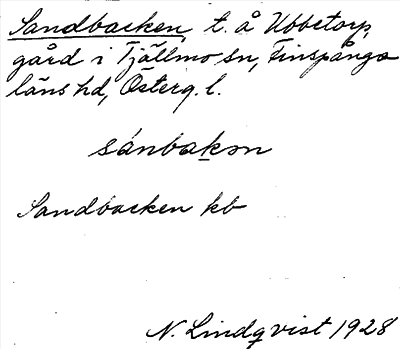 Sandbacken, t. å Ubbetorp,
gård i Tjällmo sn, Finspånga
läns hd, Österg. l.
sánbakən
Sandbacken kb
N. Lindqvist 1928